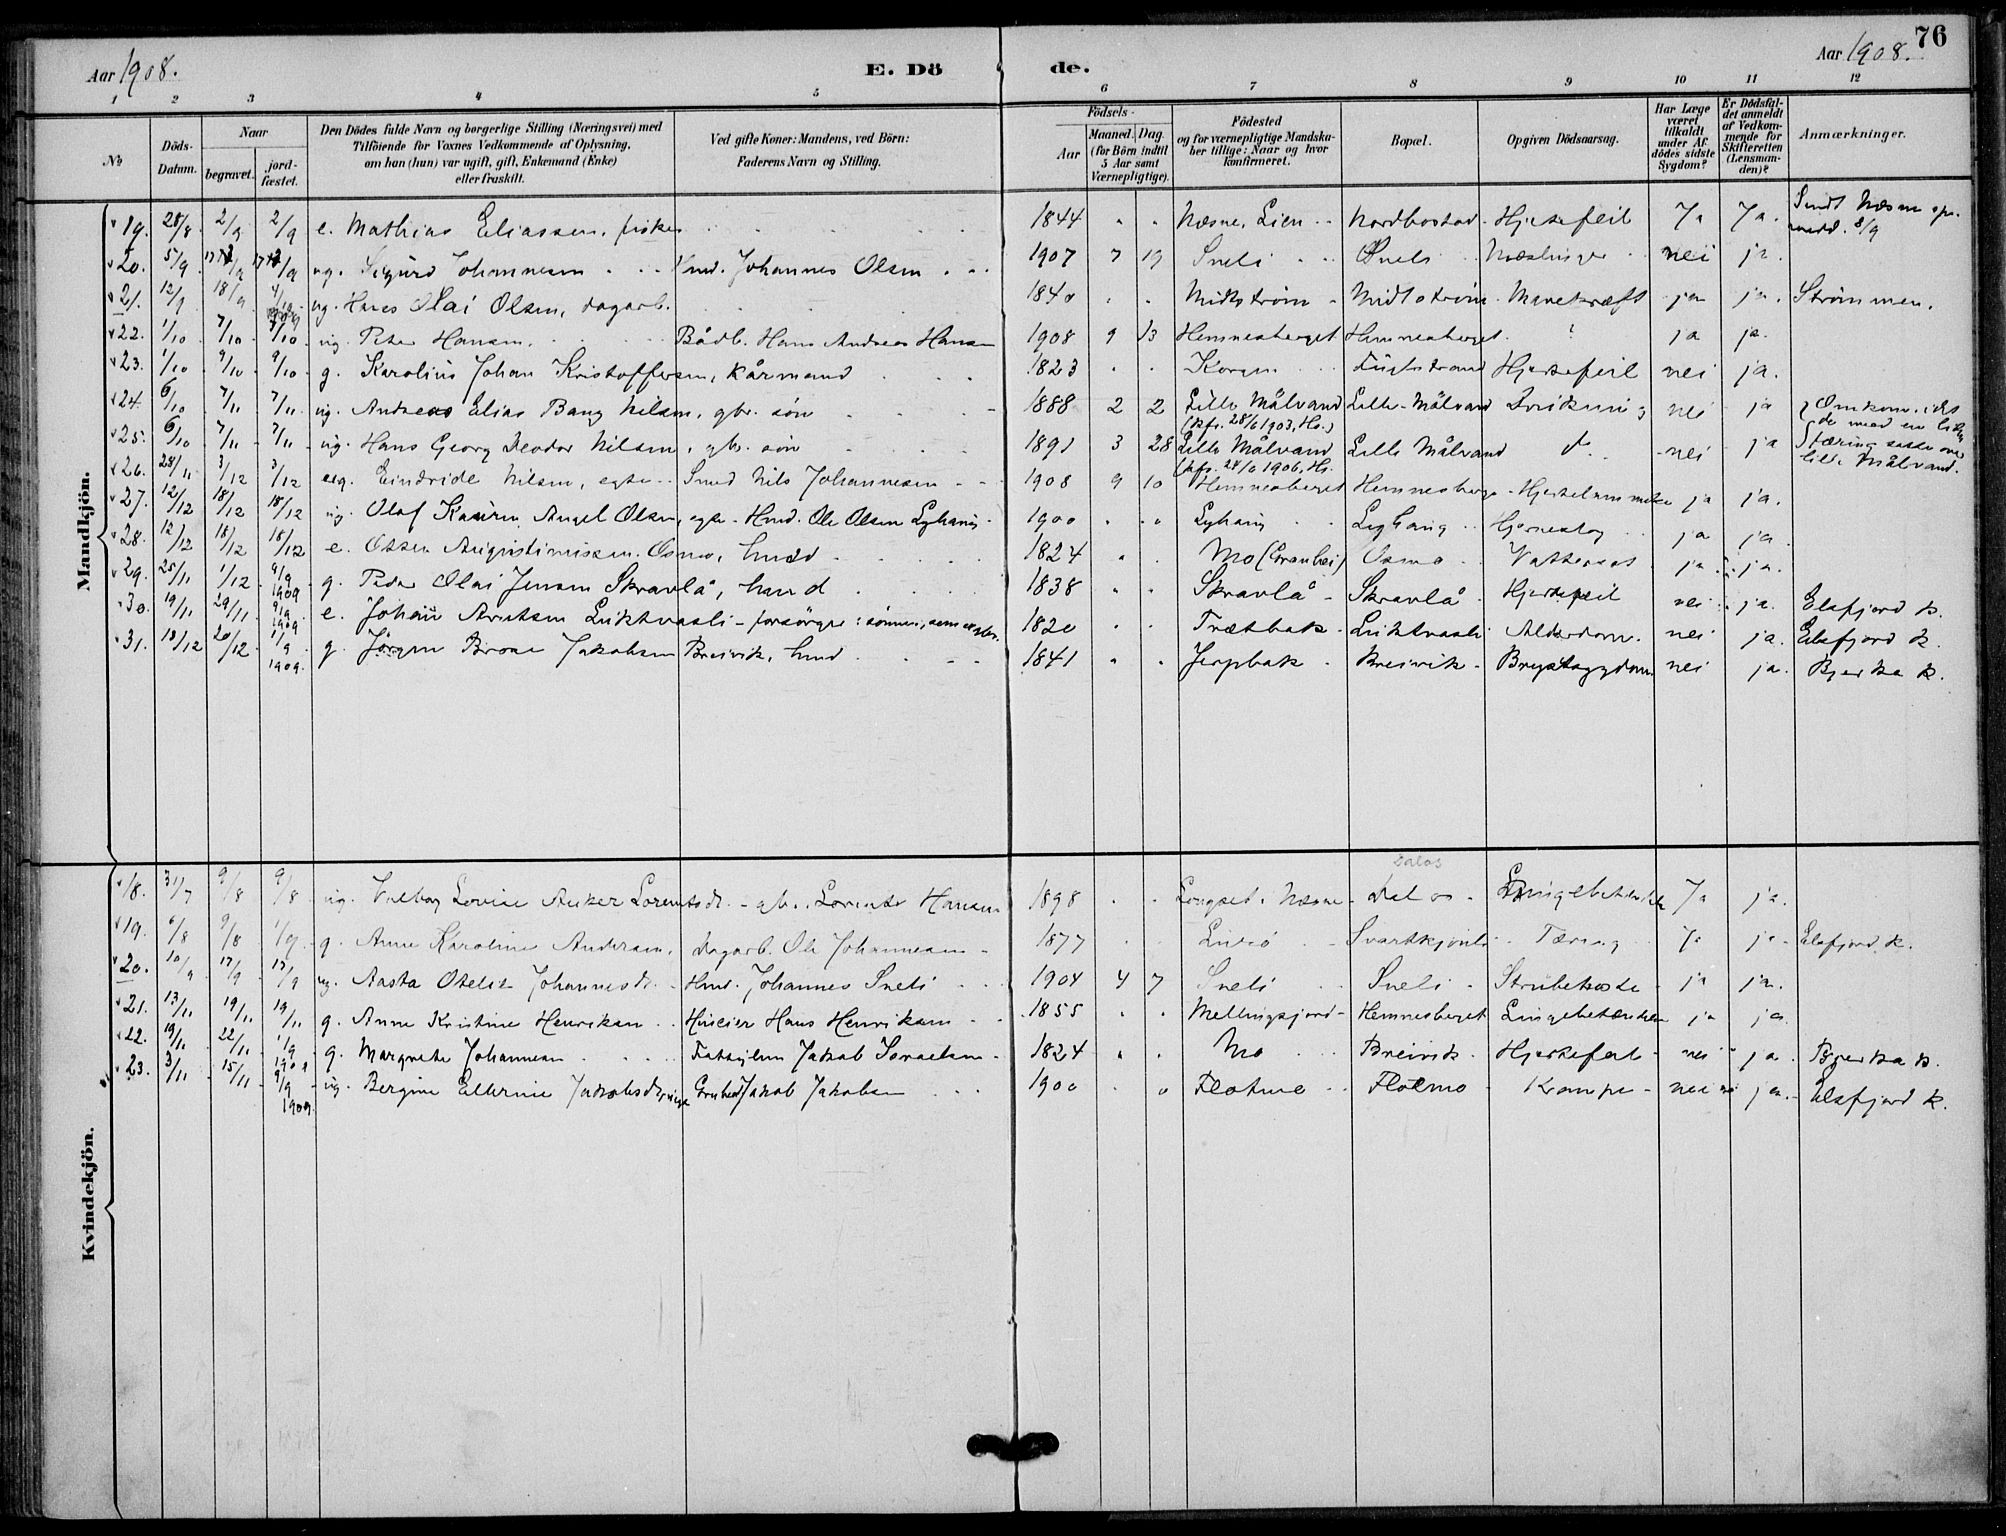 76
Aar 1908.
E. Dö de.
Aar 1908.
1 2 3 4 5 6 7 8 9 10 11 12
No
Döds-Datum.
Naar
begravet.
jordfæstet.
Den Dödes fulde Navn og borgerlige Stilling (Næringsvei) med Tilföiende for Voxnes Vedkommende af Oplysning, om han (hun) var ugift, gift, Enkemand (Enke) eller fraskilt.
Ved gifte Koner: Mandens, ved Börn: Faderens Navn og Stilling.
Födsels-
Aar
Maaned. Dag.
(for Börn indtil 5 Aar samt Værnepligtige).
Födested og for værnepligtige Mandskaber tillige: Naar og hvor konfirmeret.
Bopæl.
Opgiven Dödsaarsag.
Har Læge været tilkaldt under Afdödes sidste Sygdom?
Er Dödsfaldet anmeldt af Vedkommende for Skifteretten (Lensmanden)?
Anmærkninger.
Mandkjön.
19. 28/8 2/9 2/9 e. Mathias Eliassen, fisker 1844 Næsne, Lien Nordbostad Hjertefeil Ja Ja.
20. 5/9 ug. Sigurd Johannesen Hmd. Johannes Olsen 1907 7 19 Sneli Sneli nei ja.
21. 12/9 18/9 4/10 1909 ug. Hans Olai Olsen, dagarb. 1840 Midtstrøm Midtstrøm Marekræft ja ja. Strømmen.
22. 1/10 7/10 7/10 ug. Peter Hansen Bådb. Hans Andreas Hansen 1908 9 13 Hemnesberget Hemnesberget ? ja ja.
23. 1/10 9/10 9/10 g. Karolius Johan Kristoffersen, kårmand 1823 Korgen Hjertefeil nei ja.
24 6/10 7/11 7/11 ug. Andreas Elias Bang Nilsen, gbr. søn 1888 2 2 Lille Målvand Lille-Målvand Drukning nei ja
(kfr. 28/6 1903, Hs.)
25. 6/10 7/11 7/11 ug. Hans Georg Teodor Nilsen, gbr. søn 1891 3 28 Lille Målvand Lille Målvand nei ja
(kfr. 24/6 1906, Hs.
lille Målvand.
26. 28/11 3/12 3/12 ug. Eindride Nilsen, egte Smed Nils Johannesen 1908 9 10 Hemnesberget Hemnesberget Hjertelammelse ja ja.
27. 12/12 18/12 18/12 ug. Olaf Kaurin Angel Olsen, egte Hmd. Ole Olsen Lghaug 1900 Lghaug Lghaug ja ja
28. 12/12 18/12 18/12 e. Otter Augustinussen Osmo, hmd 1824 Mo (Granhei) Osmo Vattersot ja ja.
29. 25/11 1/12 9/9 1909 g. Peder Olai Jensen Skravlå, hmd 1838 Skravlå Skravlå Hjertefeil nei ja. Elsfjord k.
30. 19/11 29/11 9/9 1909 e. Johan Arntsen Luktvasli - forsörges: sønnen, som er gbr. 1820 Trætbak Luktvasli Alderdom. nei ja. Elsfjord k.
31. 13/12 20/12 1/9 1909. g. Jörgen Brose Jakobsen Breivik, hmd 1841 Jerpbak Breivik Brystsygdom nei ja. Bjerka k.
Kvindekjön.
18. 31/7 9/8 9/8 ug. Valborg Lovise Anker Lorentsdr. gbr. Lorents Hansen 1898 Dalos Ja ja.
Dalos
19. 6/8 9/8 g. Anne Karoline Andersen, dagarb. Ole Johannesen 1877 Tæring Ja ja Elsfjord k.
20. 10/9 17/9 17/9 ug. Aasta Otelie Johannesdr. Hmd. Johannes Sneli 1904 4 7 Sneli Sneli Strubehoste ja ja.
21. 13/11 19/11 19/11 g. Anne Kristine Henriksen Huseier Hans Henriksen 1855 Mellingsjord Hemnesberget Lungebetændelse ja ja.
22. 19/11 22/11 1/9 1909 g. Margrete Johannesen Fattiglem Jakob Israelsen 1824 Mo Breivik Hjertefeil nei ja. Bjerka k.
23. 3/11 15/11 9/9 1909. ug. Bergine Ellerine Jakobsdr, Grubearb Jakob Jakobsen 1900 Flotmo Flotmo Krampe nei ja. Elsfjord k.